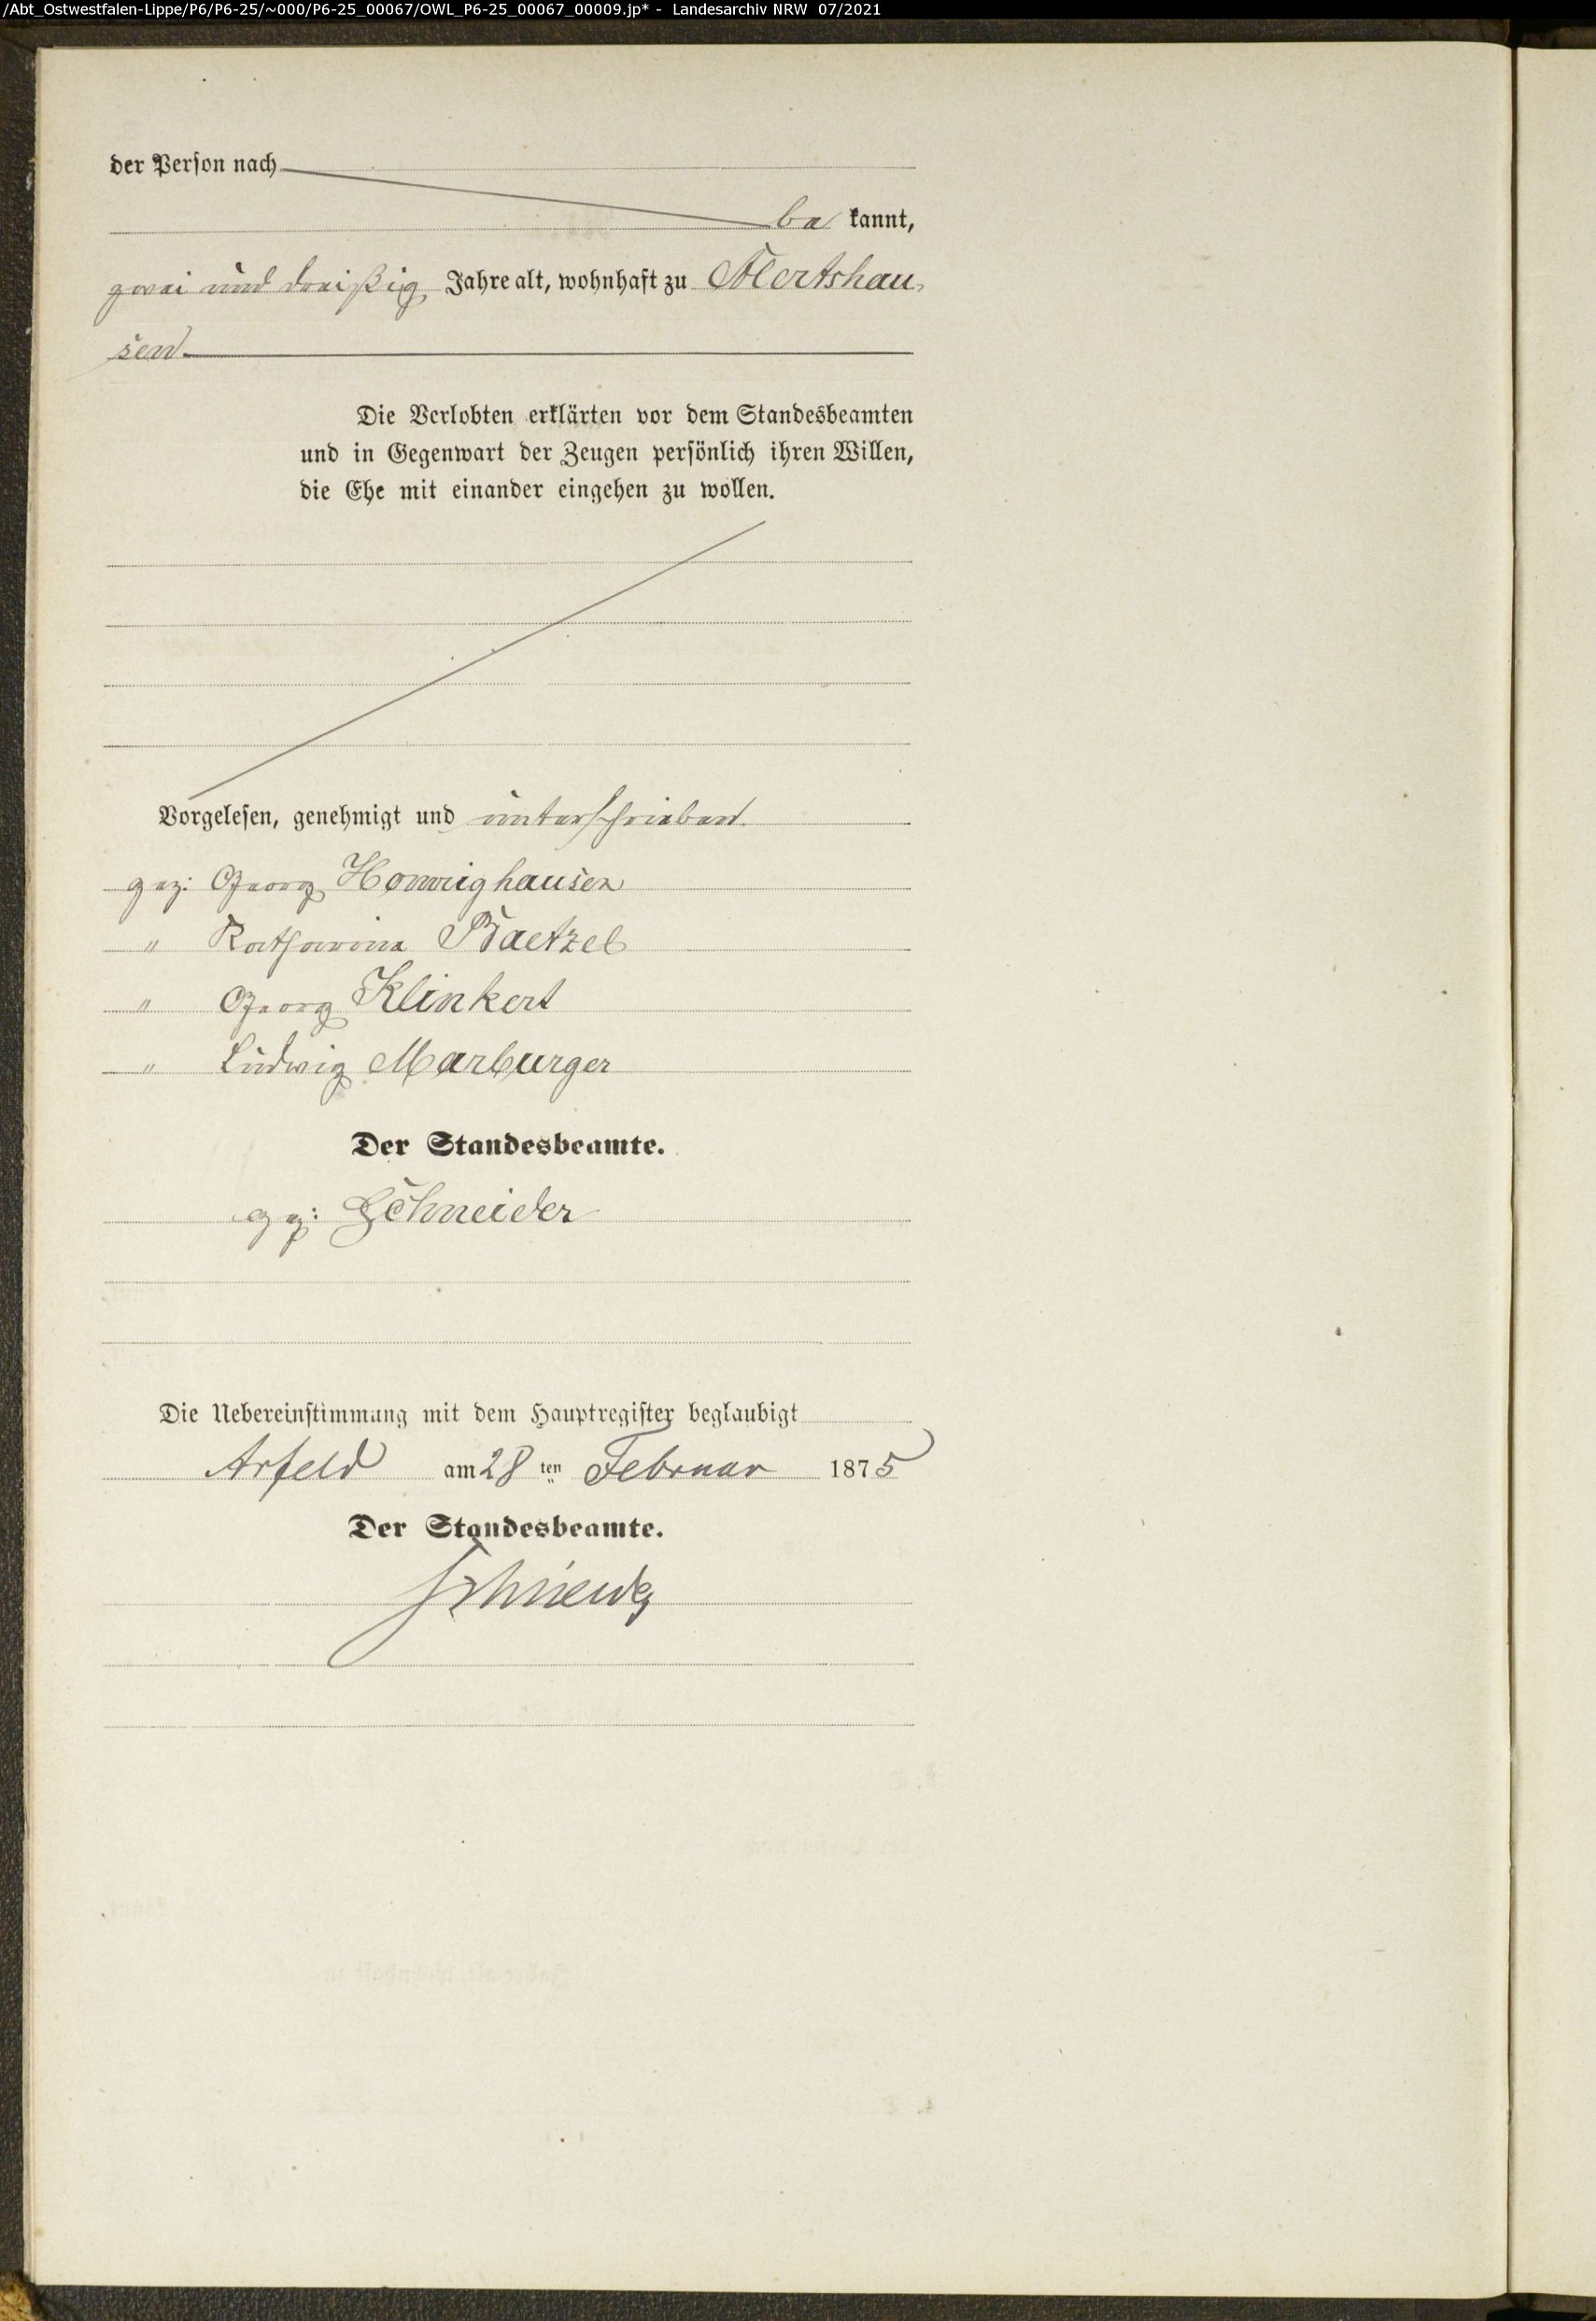 /Abt_Ostwestfalen-Lippe/P6/P6-25/~000/P6-25_00067/OWL_P6-25_00067_00009.jp* - Landesarchiv NRW 07/2021
der Person nach
be kannt,
zwei und dreißig Jahre alt, wohnhaft zu Alertshau-
sen
Die Verlobten erklärten vor dem Standesbeamten
und in Gegenwart der Zeugen persönlich ihren Willen,
die Ehe mit einander eingehen zu wollen.
Vorgelesen, genehmigt und unterschrieben
gez: Georg Homrighausen
" Katharina Baetzel
" Georg Klinkert
" Ludwig Marburger
Der Standesbeamte.
gz: Schneider
Die Uebereinstimmung mit dem Hauptregister beglaubigt
Arfeld am 28 ten Februar 1875
Der Standesbeamte.
Schneider